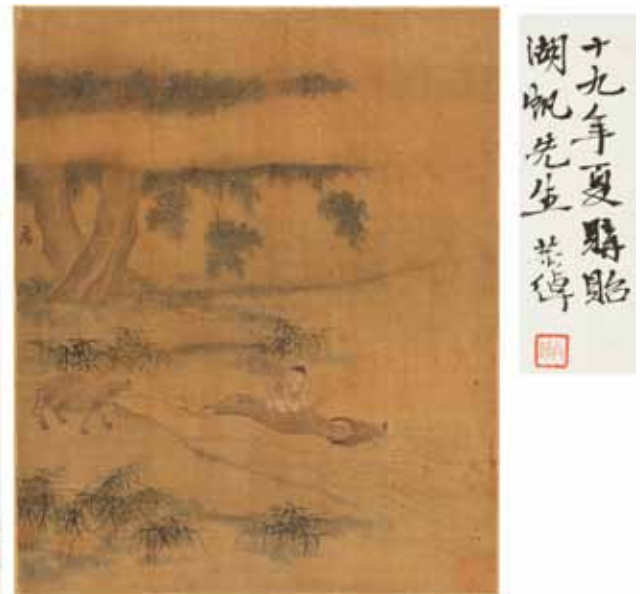 十九年夏購貽
湖帆先生 恭綽